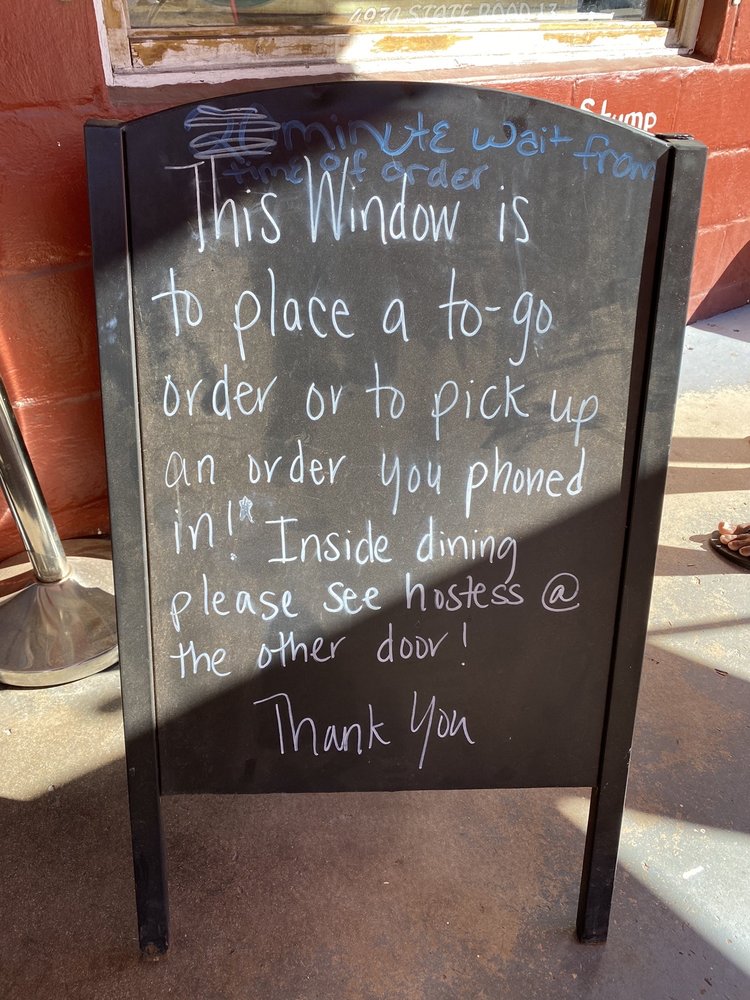 4930 STATE ROAD 13
Stump
minute wait from
time of order
This Window is
to place a to-go
order or to pick up
an order you phoned
in!* Inside dining
please see hostess @
the other door!
Thank You